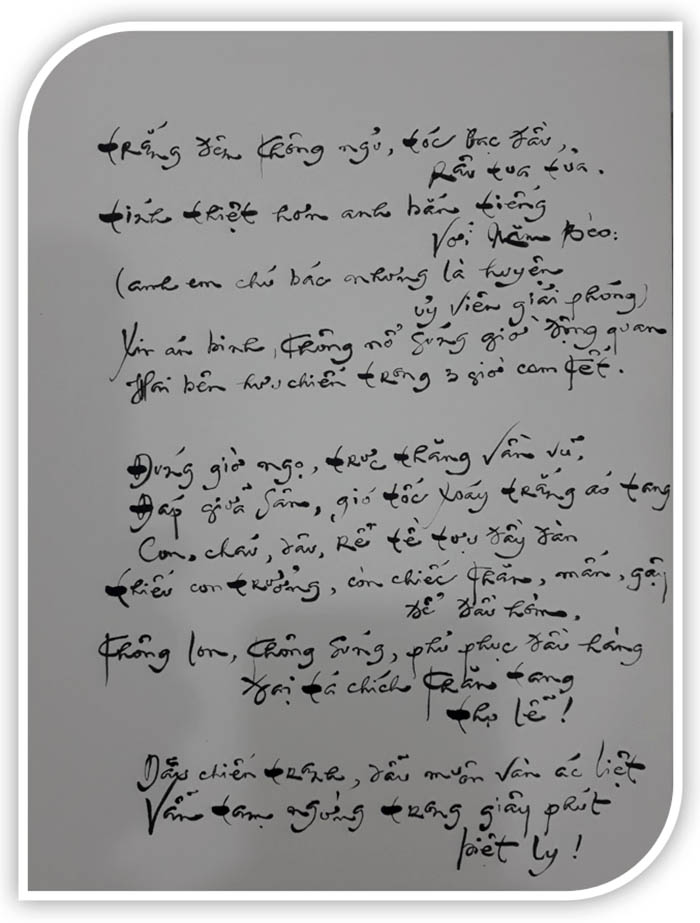 Trắng đêm không ngủ, tóc bạc đầu,
Râu tua tủa.
tính thiệt hơn anh bắn tiếng
Với Năm Bèo:
(anh em chú bác nhưng là huyện
ủy viên giải phóng)
Xin án binh, không nổ súng giờ động quan
Hai bên hưu chiến trong 3 giờ cam kết.
Đúng giờ ngọ, trực thăng vần vũ,
Đáp giữa sân, gió tốc xoáy trắng áo tang
Con, cháu, dâu, rể tề tựu đầy đàn
thiếu con trưởng, còn chiếc khăn, mấn, gậy
để đầu hòm.
Không lon, không súng, phủ phục đầu hàng
Đại tá chích khăn tang
thọ lễ!
Dẫu chiến tranh, dẫu muôn vàn ác liệt
Vẫn tạm ngưng trong giây phút
biệt ly!